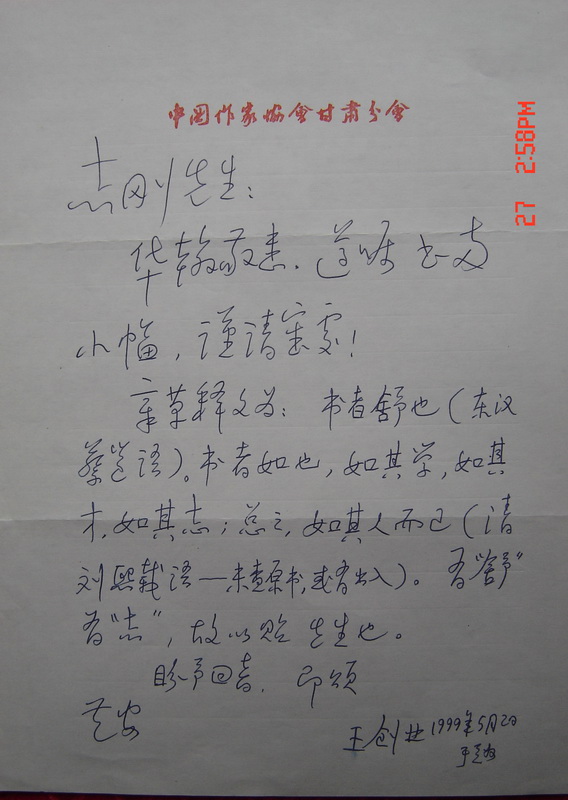 中国作家协会甘肃分会
27 2:58PM
志刚先生：
华翰敬悉．遵嘱书两
小幅，谨请案雾！
章草释文为：书者舒也（东汉
蔡邕语）。书者如也，如其学，如其
才，如其志；总之，如其人而已（清
刘熙载语——未查原书，或有出入）。有“舒”
有“志”，故以贻先生也。
盼予回音．即颂
文安
王创业1999年5月2日
于兰州